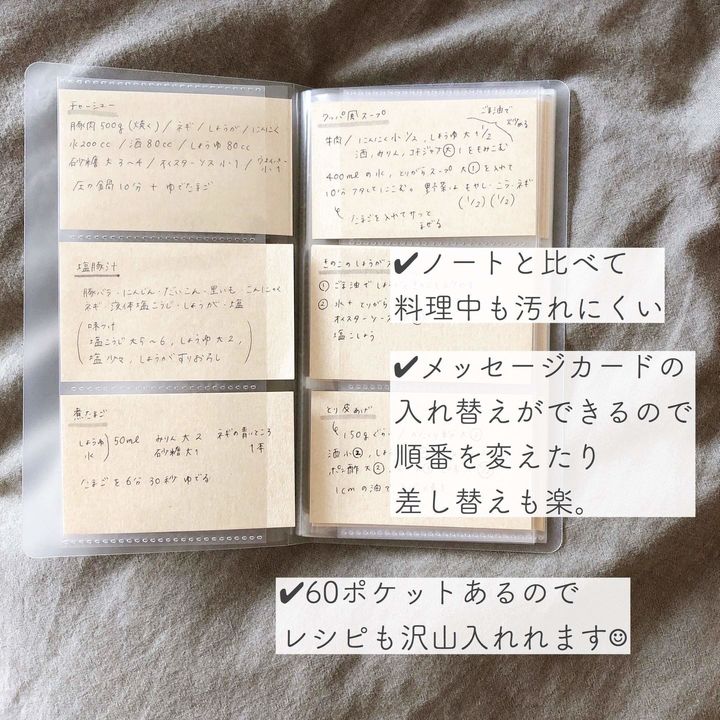 チャーシュー
豚肉500g(焼く)/ネギ/しょうが/にんにく
水200cc/酒80cc/しょうゆ80cc
砂糖大3〜4/オイスターソース小1/
圧力鍋10分+ゆでたまご
塩豚汁
豚バラ・にんじん・だいこん・里いも・こんにゃく
ネギ・液体塩こうじ・しょうが・塩
味つけ
塩こうじ大5〜6、しょうゆ大2、
塩少々、しょうがすりおろし
煮たまご
しょうゆ
水
50ml みりん大2 ネギの青いところ
砂糖大1 1本
たまごを6分30秒ゆでる
クッパ風スープ
ごま油で
炒める
牛肉/にんにく小1/2、しょうゆ大1/2
酒、みりん、コチュジャン大1をもみこむ
400mlの水、とりがらスープ大①を入れて
10分フタしてにこむ。野菜はもやし・ニラ・ネギ
(1/2)(1/2)
たまごを入れてサッと
まぜる
きのこのしょうが
① ごま油でしょ
② 水 とりがら
オイスターソース
塩こしょう
とり皮あげ
150g
酒小②、し
ポン酢大②
1cmの油で
✔ノートと比べて
料理中も汚れにくい
✔メッセージカードの
入れ替えができるので
順番を変えたり
差し替えも楽。
✔60ポケットあるので
レシピも沢山入れれます☺